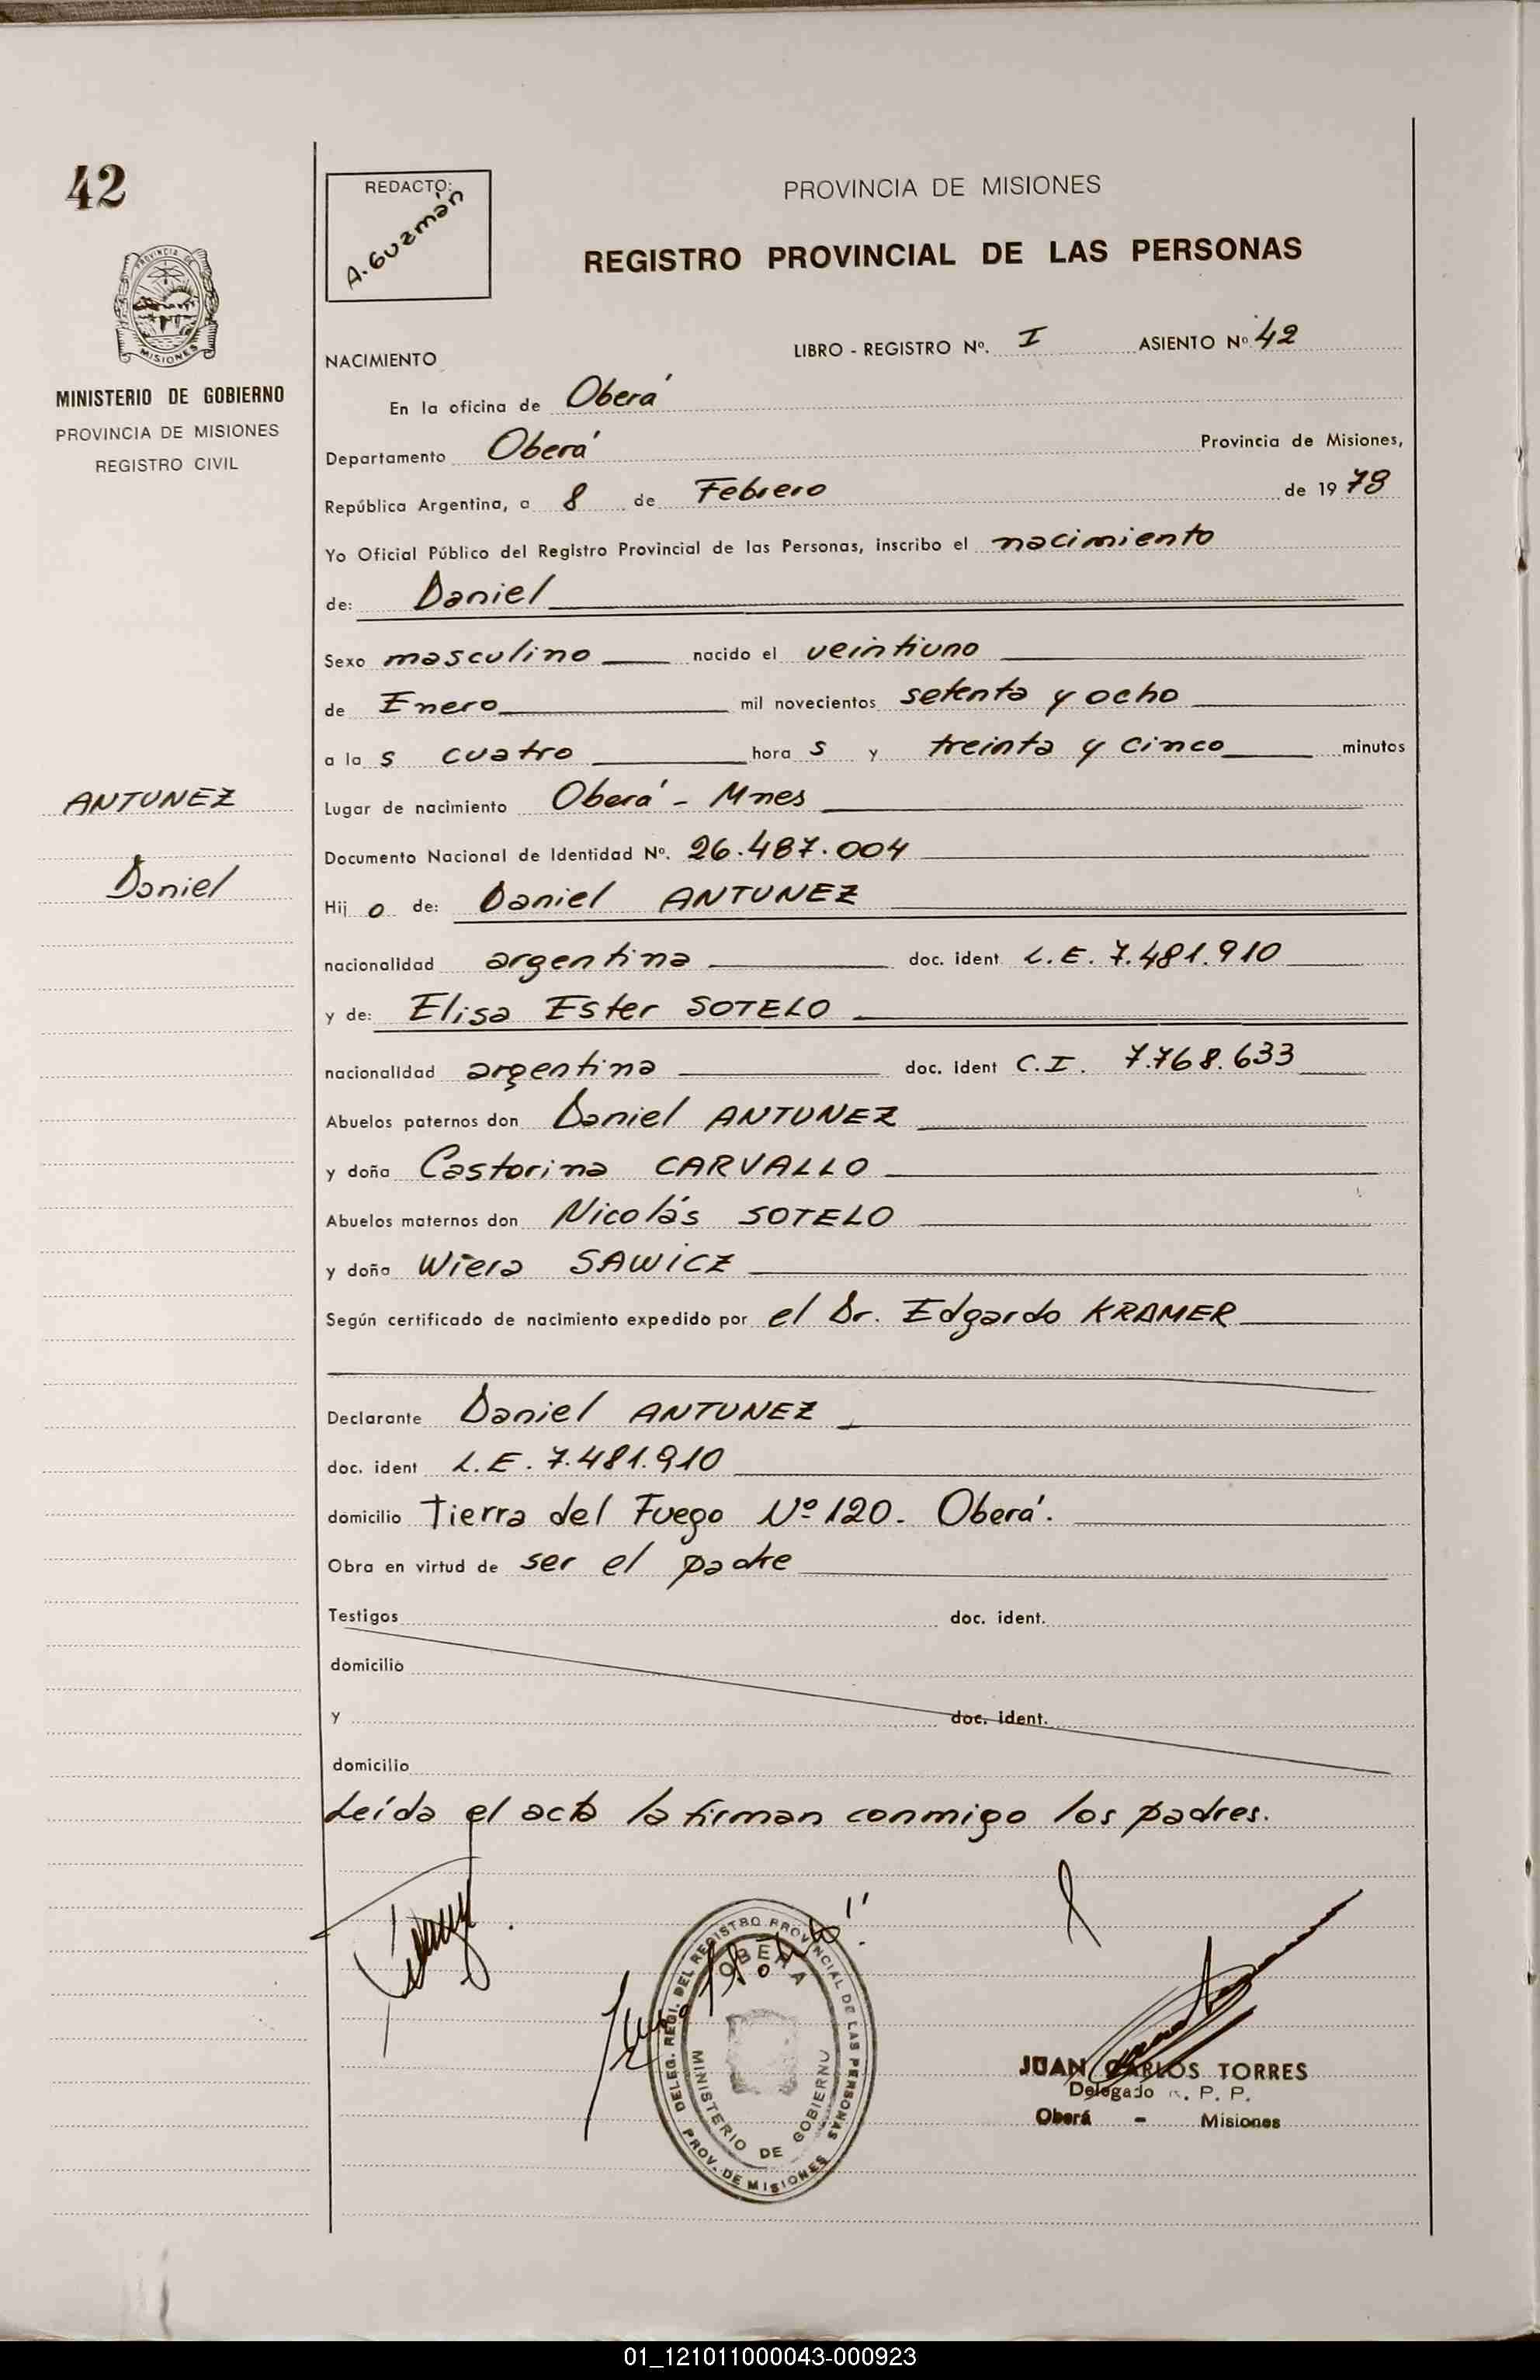 42
PROVINCIA DE
MISIONES
MINISTERIO DE GOBIERNO
PROVINCIA DE MISIONES
REGISTRO CIVIL
ANTUNEZ
Daniel
REDACTO:
A. Guzmán
PROVINCIA DE MISIONES
REGISTRO PROVINCIAL DE LAS PERSONAS
NACIMIENTO LIBRO - REGISTRO Nº. I ASIENTO Nº 42
En la oficina de Oberá
Departamento Oberá Provincia de Misiones,
República Argentina, a 8 de Febrero de 1978
Yo Oficial Público del Registro Provincial de las Personas, inscribo el nacimiento
de: Daniel
Sexo masculino nacido el veintiuno
de Enero mil novecientos setenta y ocho
a las cuatro horas y treinta y cinco minutos
Lugar de nacimiento Oberá - Mnes
Documento Nacional de Identidad Nº. 26.487.004
Hijo de: Daniel ANTUNEZ
nacionalidad argentina doc. ident L.E. 7.481.910
y de: Elisa Ester SOTELO
nacionalidad argentina doc. ident C.I. 7.768.633
Abuelos paternos don Daniel ANTUNEZ
y doña Castorina CARVALLO
Abuelos maternos don Nicolás SOTELO
y doña Wiera SAWICZ
Según certificado de nacimiento expedido por el Dr. Edgardo KRAMER
Declarante Daniel ANTUNEZ
doc. ident L.E. 7.481.910
domicilio Tierra del Fuego Nº 120. Oberá.
Obra en virtud de ser el padre
Testigos doc. ident.
domicilio
y doc. ident.
domicilio
Leída el acta la firman conmigo los padres.
DELEG. REGI. DEL REGISTRO PROVINCIAL DE LAS PERSONAS
OBERA
MINISTERIO DE GOBIERNO
PROV. DE MISIONES
JUAN CARLOS TORRES
Delegado R. P. P.
Oberá - Misiones
01_121011000043-000923